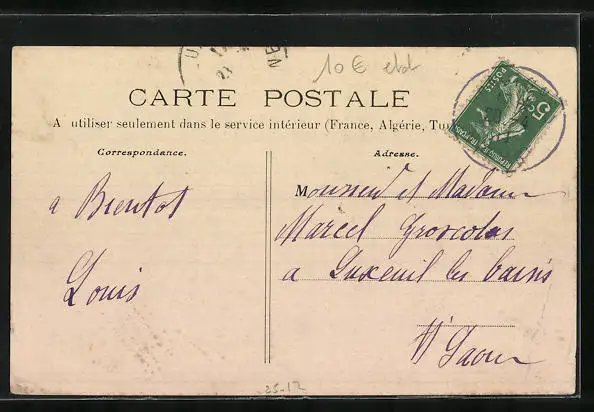 10 € etd
CARTE POSTALE
A utiliser seulement dans le service intérieur (France, Algérie, Tu
Correspondance.
Adresse.
5c
POSTES
a Bientot
Louis
Monsieur et Madame
Marcel Groscolas
a Luxeuil les bains
Hte Saone
25-12